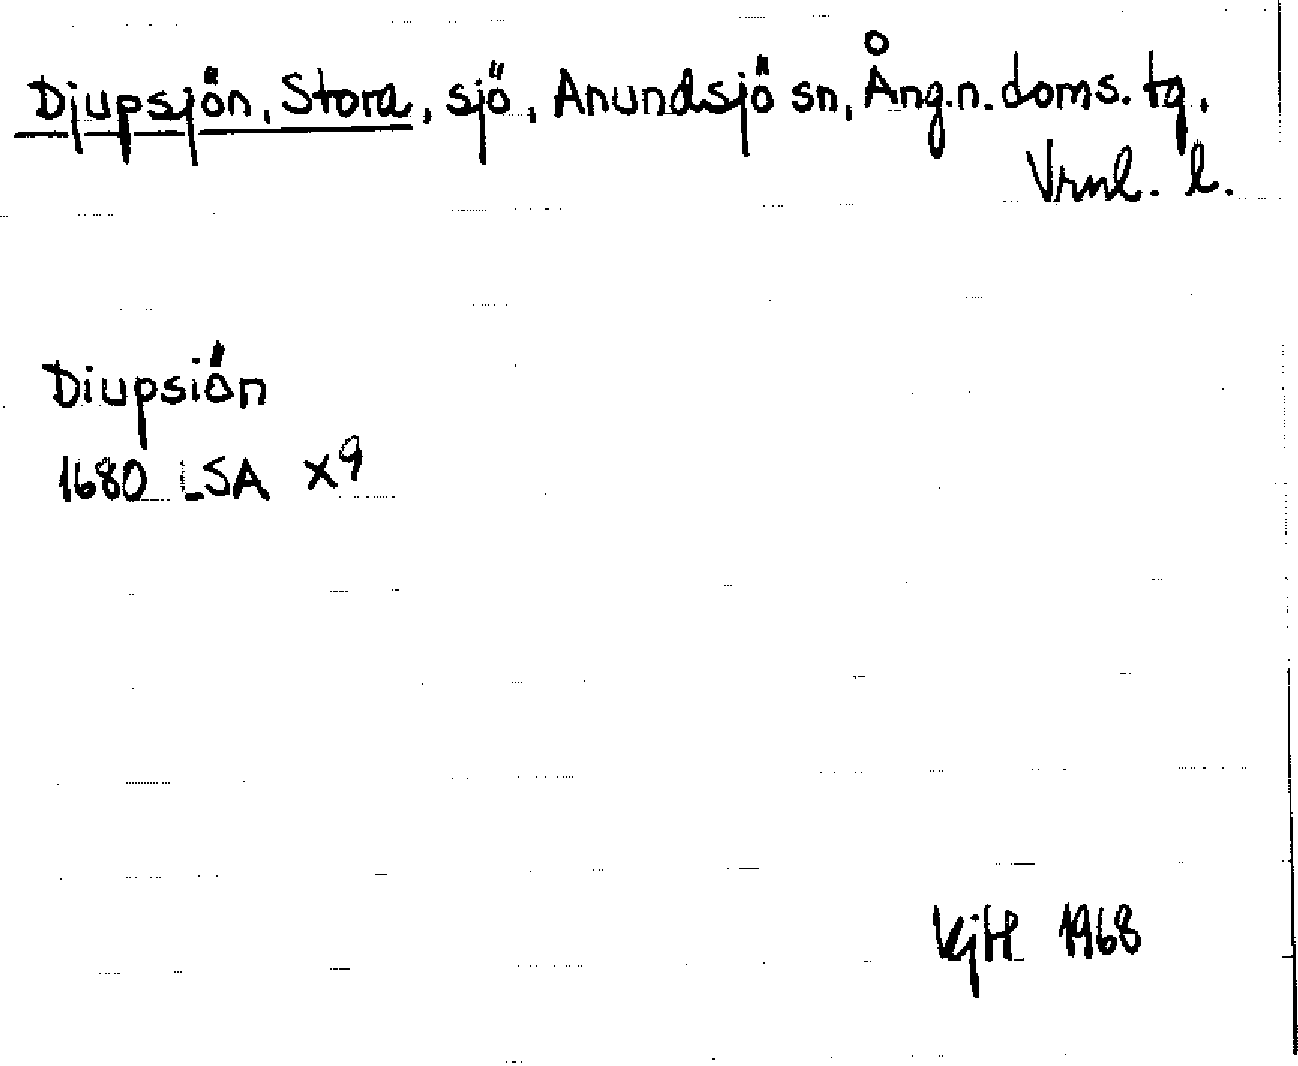 Djupsjön, Stora, sjö, Anundsjö sn, Ång.n. doms. tg,
Vrnl. l.
Diupsiön
1680 LSA X9
KjH 1968